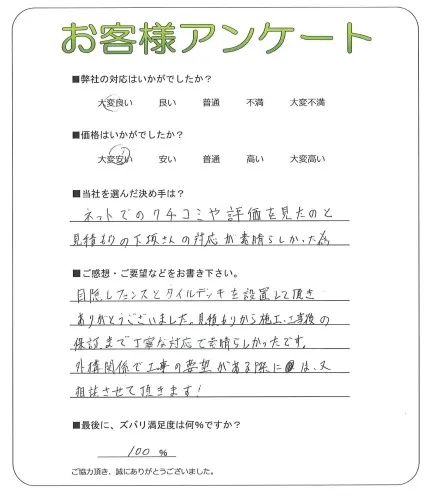 お客様アンケート
■弊社の対応はいかがでしたか?
大変良い 良い 普通 不満 大変不満
■価格はいかがでしたか?
大変安い 安い 普通 高い 大変高い
■当社を選んだ決め手は?
ネットでのクチコミや評価を見たのと
見積もりの下坂さんの対応が素晴らしかった為
■ご感想・ご要望などをお書き下さい。
目隠しフェンスとタイルデッキを設置して頂き
ありがとうございました。見積もりから施工、工事後の
保証まで丁寧な対応で素晴らしかったです。
外構関係で工事の要望がある際には、又
相談させて頂きます!
■最後に、ズバリ満足度は何%ですか?
100 %
ご協力頂き、誠にありがとうございました。